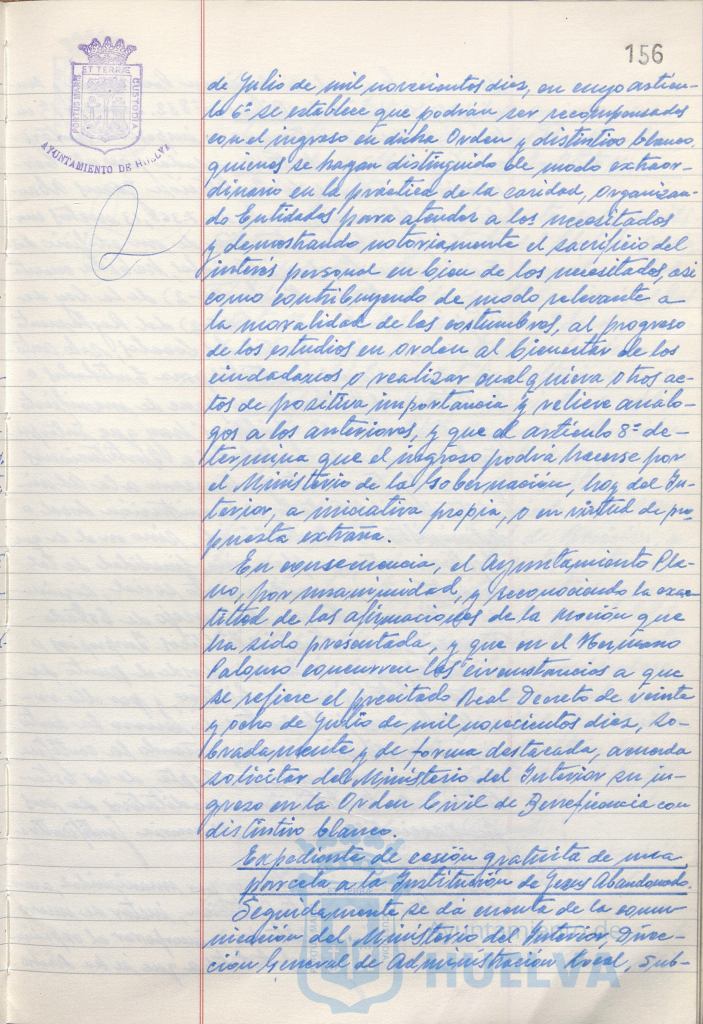 156
ET TERRÆ
PORTUS MARIS
CUSTODIA
AYUNTAMIENTO DE HUELVA
de Julio de mil novecientos diez, en cuyo artícu-
lo 6º se establece que podrán ser recompensados
con el ingreso en dicha Orden y distintivo blanco,
quienes se hayan distinguido de modo extraor-
dinario en la práctica de la caridad, organizan-
do Entidades para atender a los necesitados
y demostrando notoriamente el sacrificio del
interés personal en bien de los necesitados, así
como contribuyendo de modo relevante a
la moralidad de las costumbres, al progreso
de los estudios en orden al bienestar de los
ciudadanos o realizar cualquiera otros ac-
tos de positiva importancia y relieve análo-
gos a los anteriores, y que el artículo 8º de-
termina que el ingreso podrá hacerse por
el Ministerio de la Gobernación, hoy del In-
terior, a iniciativa propia, o en virtud de pro-
puesta extraña.
En consecuencia, el Ayuntamiento Ple-
no, por unanimidad, y reconociendo la exac-
titud de las afirmaciones de la moción que
ha sido presentada, y que en el Hermano
concurren las circunstancias a que
se refiere el precitado Real Decreto de veinte
y ocho de Julio de mil novecientos diez, so-
bradamente y de forma destacada, acuerda
solicitar del Ministerio del Interior su in-
greso en la Orden Civil de Beneficencia con
distintivo blanco.
Expediente de cesión gratuita de una
parcela a la Institución de Jesús Abandonado.
Seguidamente se dá cuenta de la comu-
nicación del Ministerio del Interior, Direc-
ción General de Administración Local, Sub-
Ayuntamiento de
HUELVA